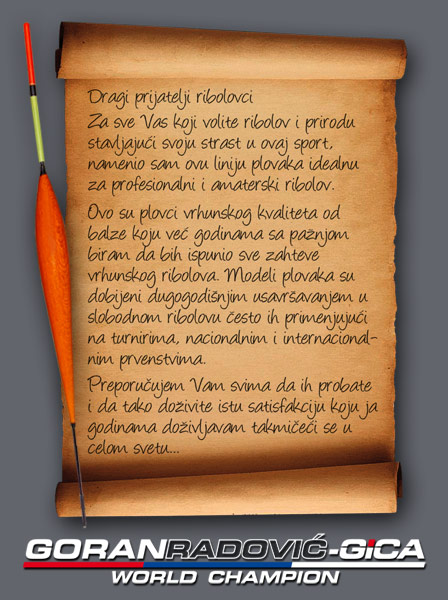 Dragi prijatelji ribolovci
Za sve Vas koji volite ribolov i prirodu
stavljajući svoju strast u ovaj sport,
namenio sam ovu liniju plovaka idealnu
za profesionalni i amaterski ribolov.
Ovo su plovci vrhunskog kvaliteta od
balze koju već godinama sa pažnjom
biram da bih ispunio sve zahteve
vrhunskog ribolova. Modeli plovaka su
dobijeni dugogodišnjim usavršavanjem u
slobodnom ribolovu često ih primenjujući
na turnirima, nacionalnim i internacional-
nim prvenstvima.
Preporučujem Vam svima da ih probate
i da tako doživite istu satisfakciju koju ja
godinama doživljavam takmičeći se u
celom svetu...
GORANRADOVIĆ-GICA
WORLD CHAMPION